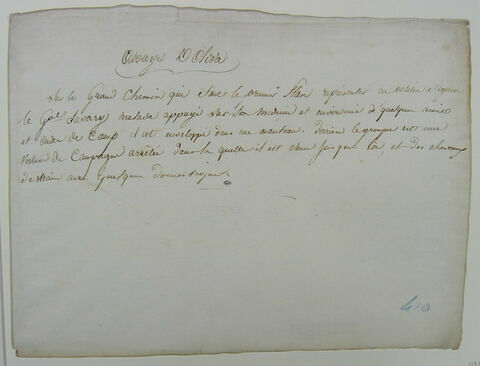 Ouvage D'Oliva
Sur le Grand Chemin qui fait le premier plan représenter en petite
le Gal. Savary malade appuyé sur son médecin et environné de quelques amis
et aides de Camp il est enveloppé dans un manteau. Derrière le groupe est une
voiture de Campagne arrêtée dans la quelle il est venu jusques là, et des chevaux
de main avec quelques domestiques.
410